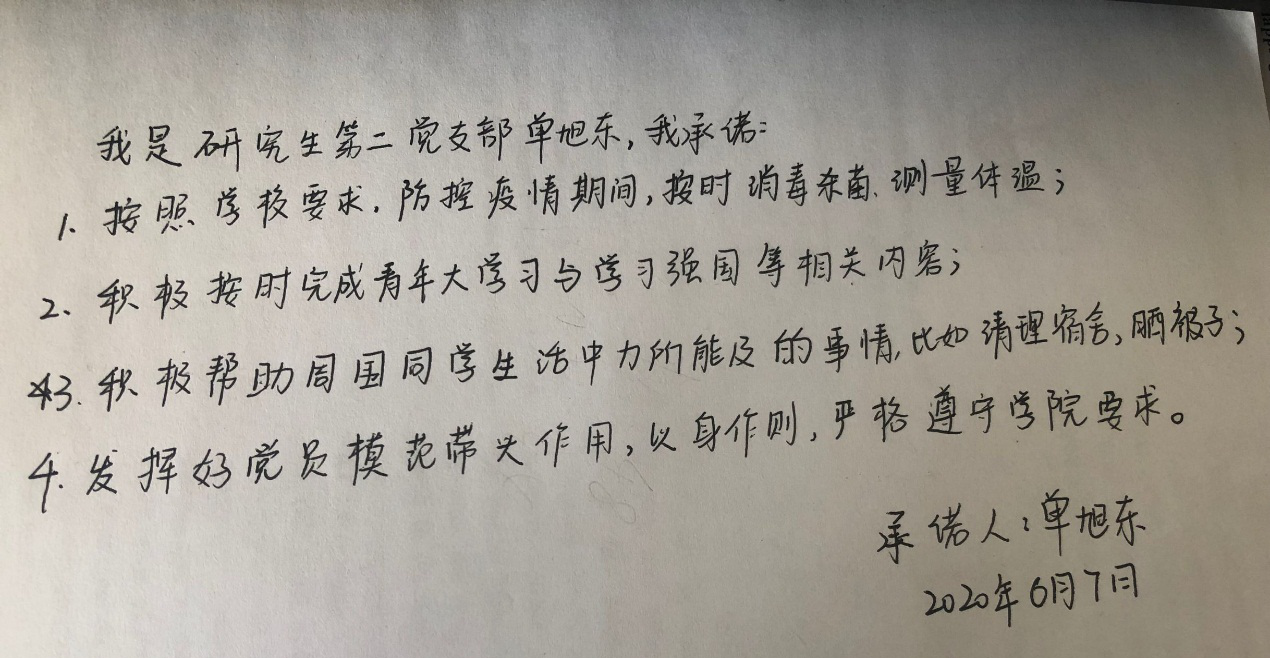 我是研究生第二党支部单旭东,我承诺:
1、按照学校要求,防控疫情期间,按时消毒杀菌、测量体温;
2、积极按时完成青年大学习与学习强国等相关内容;
3.积极帮助周围同学生活中力所能及的事情,比如清理宿舍,晒被子;
4.发挥好党员模范带头作用,以身作则,严格遵守学院要求。
承诺人:单旭东
2020年6月7日